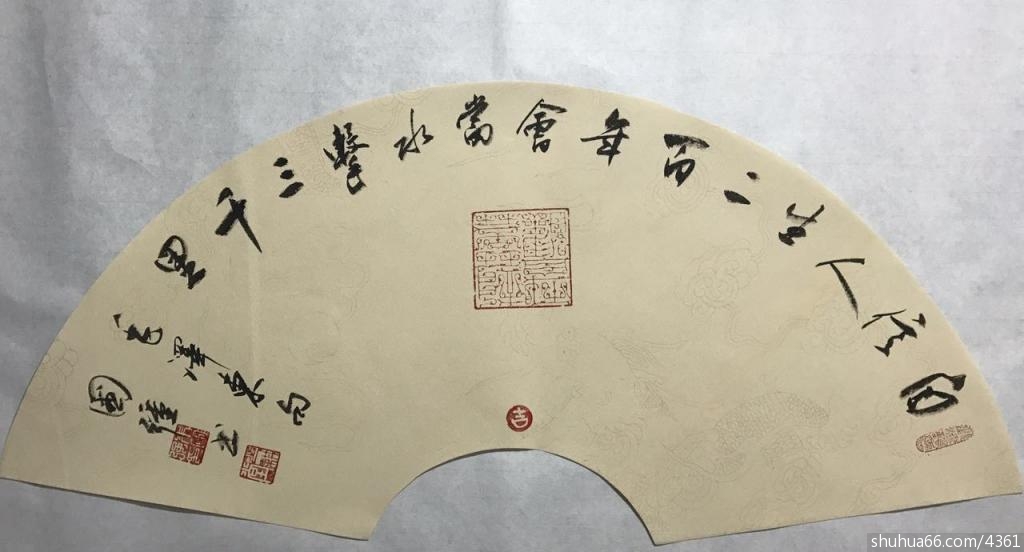 自信人生二百年會當水擊三千里
毛澤東句
國 书
吉
shuhua66.com/4361